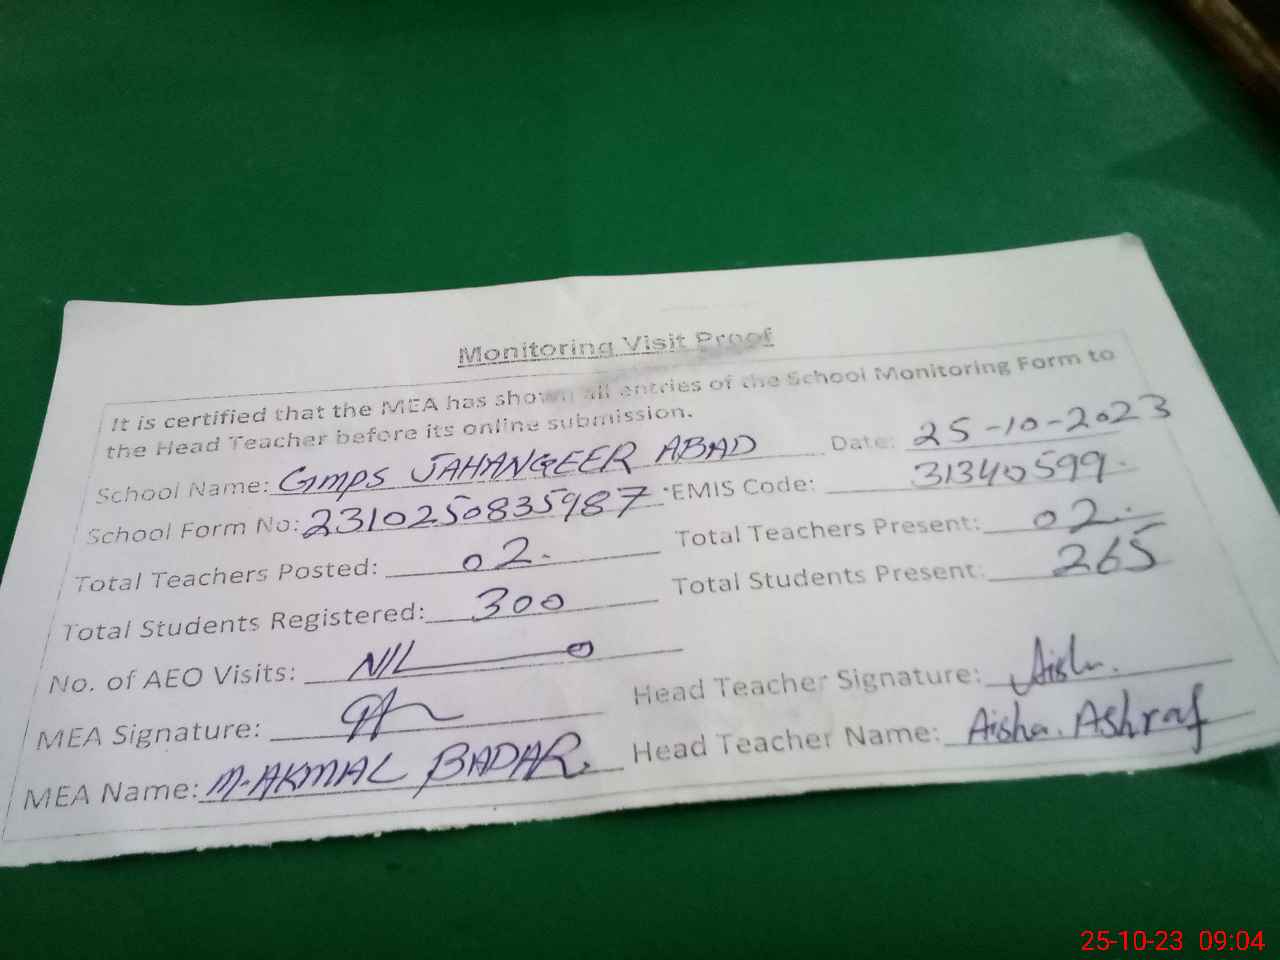 Monitoring Visit Proof
It is certified that the MEA has shown all entries of the School Monitoring Form to
the Head Teacher before its online submission.
School Name: GMPS JAHANGEER ABAD Date: 25-10-2023
School Form No: 2310250835987 EMIS Code: 31340599
Total Teachers Posted: 02 Total Teachers Present: 02
Total Students Registered: 300 Total Students Present: 265
No. of AEO Visits: NIL
MEA Signature: Head Teacher Signature: Aisha
MEA Name: M. AKMAL BADAR. Head Teacher Name: Aisha. Ashraf
25-10-23 09:04